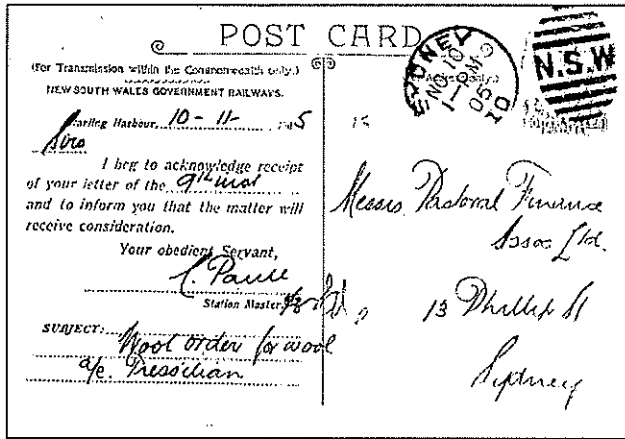 POST CARD
(For Transmission within the Commonwealth only.)
NEW SOUTH WALES GOVERNMENT RAILWAYS.
Darling Harbour, 10-11- 1905
Sirs
I beg to acknowledge receipt
of your letter of the 9th inst
and to inform you that the matter will
receive consideration.
Your obedient Servant,
Station Master
SUBJECT: Wool order for wool
a/c. Tressilian
SYDNEY
NO 10
1-PM
05
10
N.S.W
Messrs. Pastoral Finance
Assoc Ltd.
13 Phillip St
Sydney